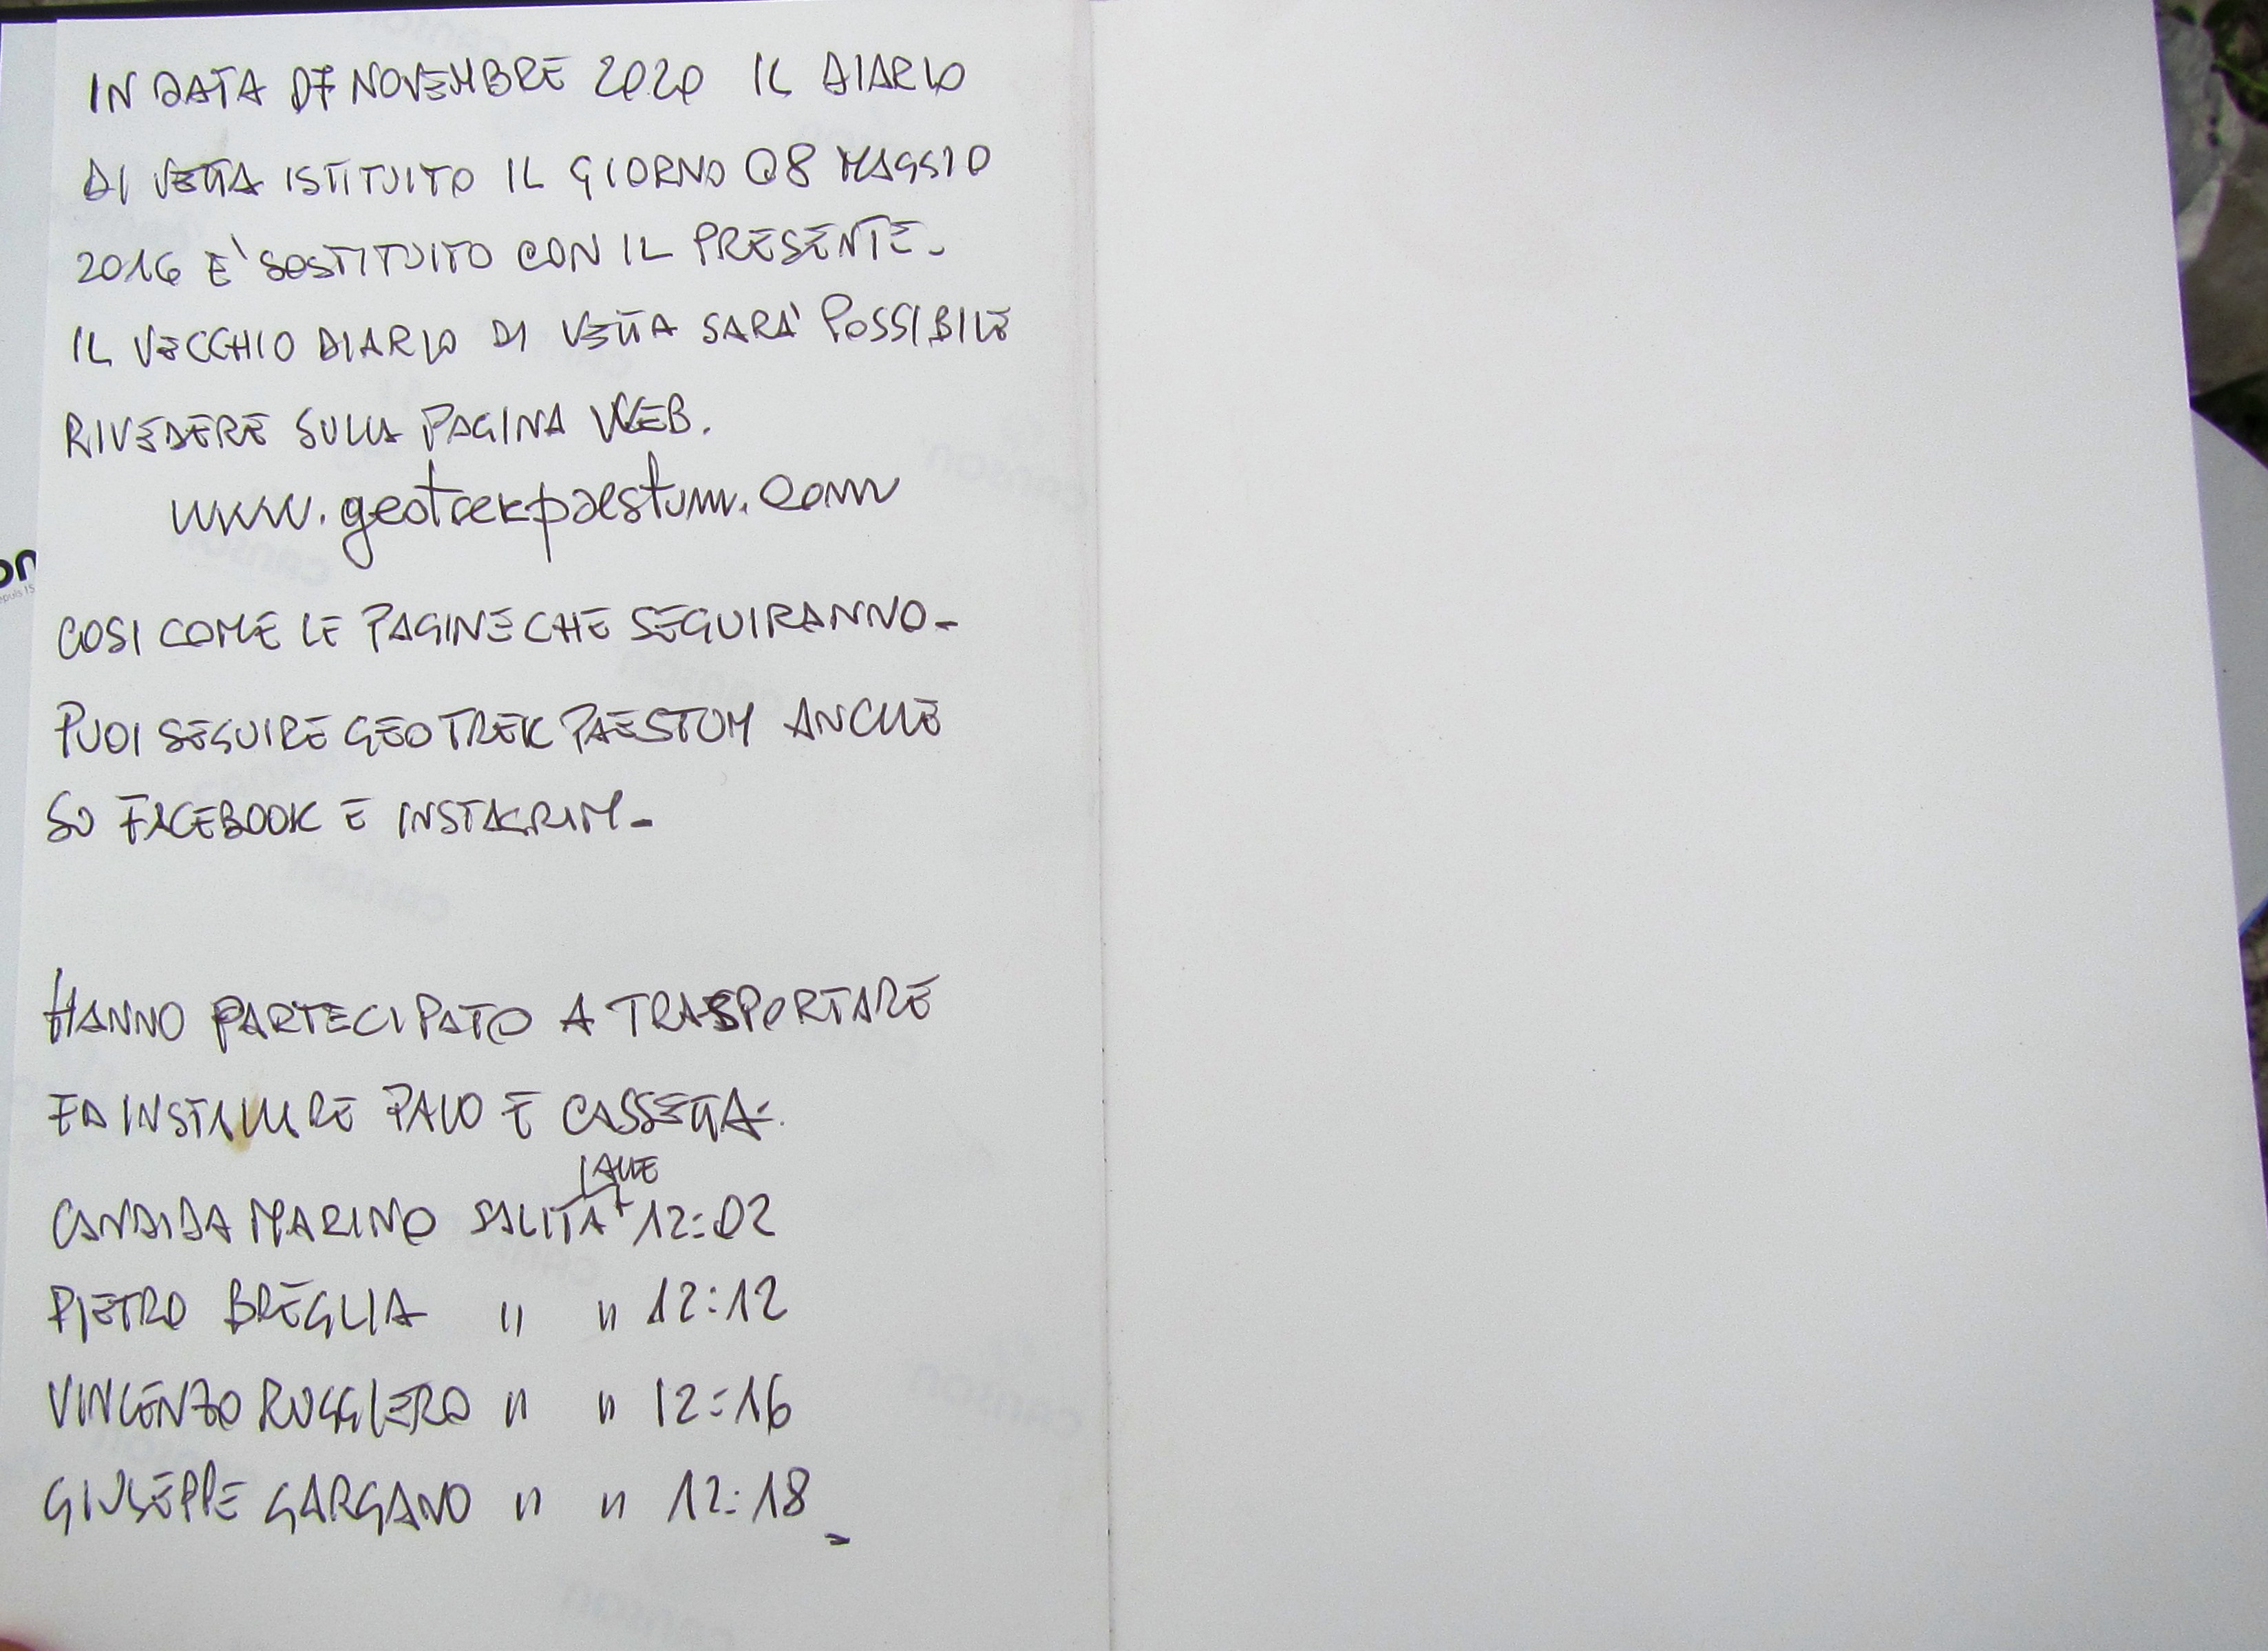 IN DATA 07 NOVEMBRE 2020 IL DIARIO
DI VETTA ISTITUITO IL GIORNO 08 MAGGIO
2016 E' SOSTITUITO CON IL PRESENTE-
IL VECCHIO DIARIO DI VETTA SARA' POSSIBILE
RIVEDERE SULLA PAGINA WEB.
www.geotrekpaestum.com
COSI COME LE PAGINE CHE SEGUIRANNO-
PUOI SEGUIRE GEOTREK PAESTUM ANCHE
SU FACEBOOK E INSTAGRAM-
HANNO PARTECIPATO A TRASPORTARE
ED INSTALLARE PALO E CASSETTA:
ALLE
CANDIDA MARINO SALITA 12:02
PIETRO BREGLIA " " 12:12
VINCENZO RUGGIERO " " 12:16
GIUSEPPE GARGANO " " 12:18